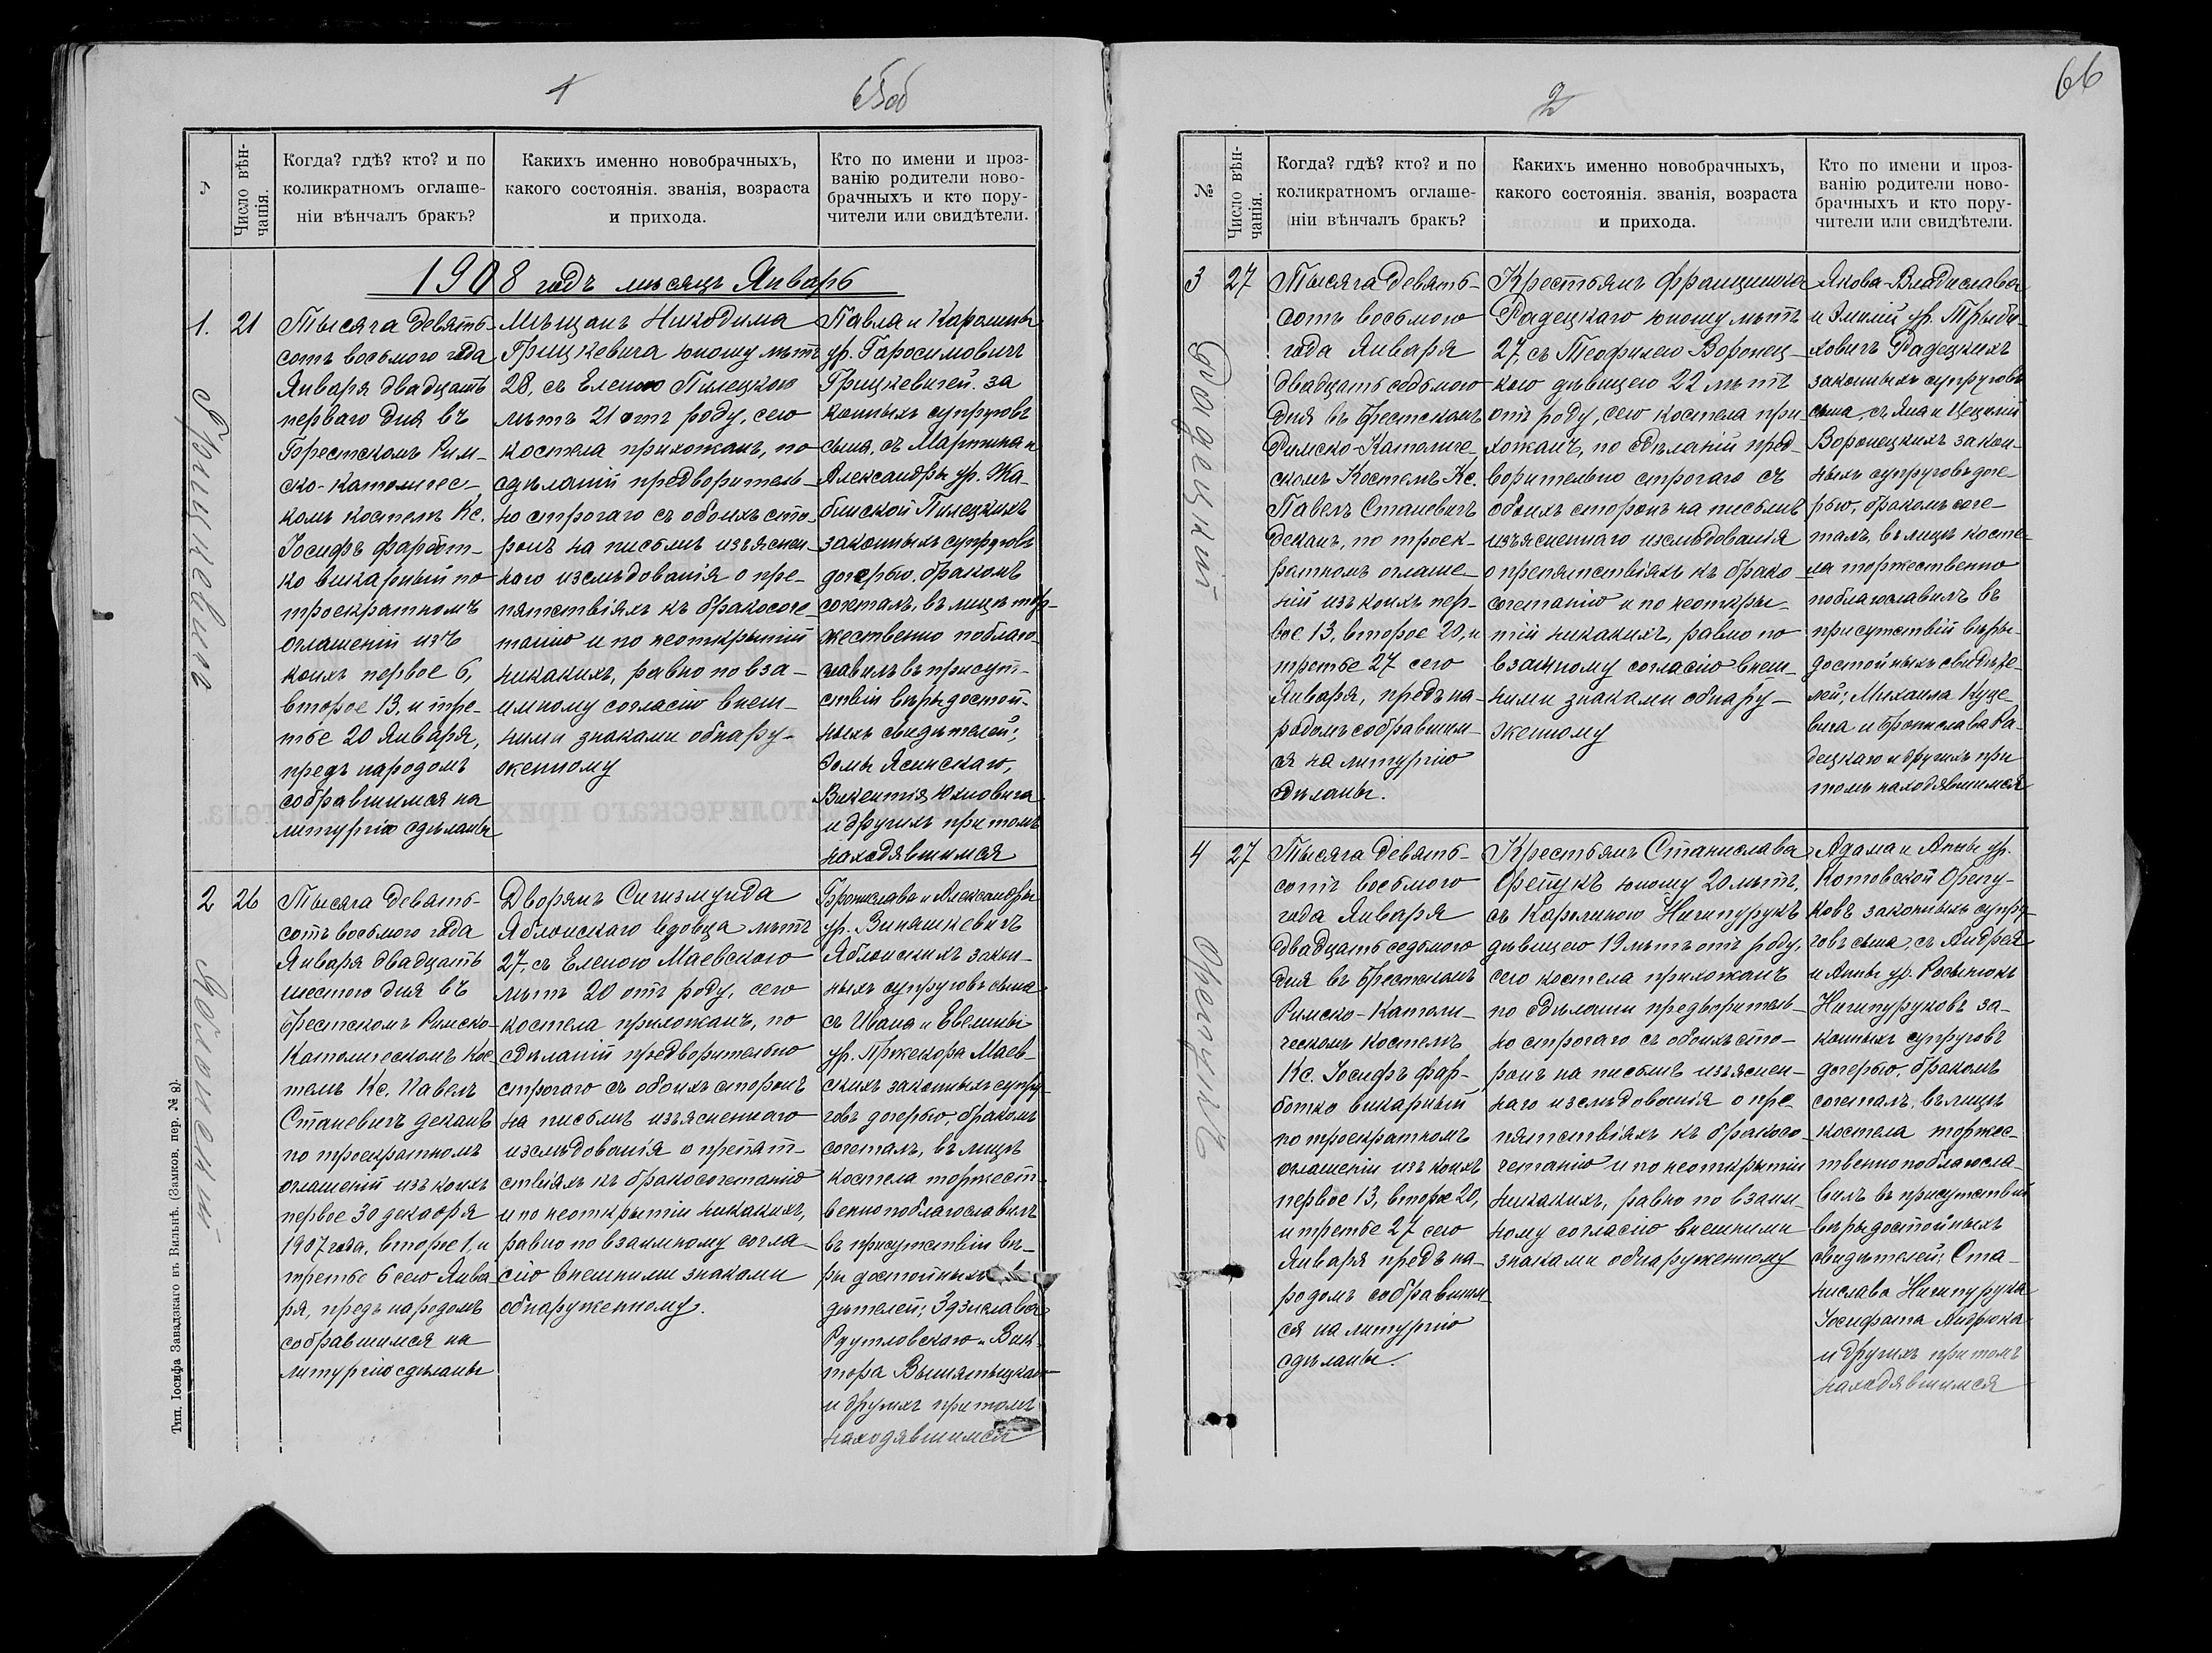 1
65об
№
Число вѣн-
чанія.
Когда? гдѣ? кто? и по
коликратномъ оглаше-
ніи вѣнчалъ бракъ?
Какихъ именно новобрачныхъ,
какого состоянія. званія, возраста
и прихода.
Кто по имени и проз-
ванію родители ново-
брачныхъ и кто пору-
чители или свидѣтели.
1908 годъ мѣсяцъ Январь
1.
21
Грицкевичъ
Тысяча девять-
сотъ восьмого года
Января двадцать
перваго дня въ
Брестскомъ Рим-
ско-католичес-
комъ костелѣ Кс.
Іосифъ Фарбот-
ко викарный по
троекратномъ
оглашеніи изъ
коихъ первое 6,
второе 13, и тре-
тье 20 Января,
предъ народомъ
собравшимся на
литургію сдѣланы
Мѣщанъ Никодима
Грицкевича юношу лѣтъ
28, съ Еленою Пилецкою
лѣтъ 21 отъ роду, сего
костела прихожанъ, по
сдѣланіи предворитель-
но строгаго съ обоихъ сто-
ронъ на письмѣ изъяснен-
наго изслѣдованія о пре-
пятствіяхъ къ бракосоче-
танію и по неоткрытіи
никакихъ, равно по вза-
имному согласію внеш-
ними знаками обнару-
женному
Павла и Каролины
ур. Гаросимовичъ
Грицкевичей за
конныхъ супруговъ
сына, съ Мартина и
Александры ур. Жа-
бинской Пилецкихъ
законныхъ супруговъ
дочерью, бракомъ
сочеталъ, въ лицѣ тор-
жественно поблаго-
славилъ въ присут-
ствіи вѣрыдостой-
ныхъ свидѣтелей;
Фомы Ясинскаго,
Викентія Юхновича
и другихъ при томъ
находявшимся
2
26
Яблонскій
Тысяча девять-
сотъ восьмого года
Января двадцать
шестого дня въ
Брестскомъ Римско-
Католическомъ Кос
телѣ Кс. Павелъ
Станевичъ деканъ
по троекратномъ
оглашеній изъ коихъ
первое 30 декабря
1907 года, второе 1, и
третье 6 сего Янва
ря, предъ народомъ
собравшимся на
литургію сдѣланы
Дворянъ Сигизмунда
Яблонскаго вдовца лѣтъ
27, съ Еленою Маевскою
лѣтъ 20 отъ роду, сего
костела прихожанъ, по
сдѣланіи предворительно
строгаго съ обоихъ сторонъ
на письмѣ изъясненнаго
изслѣдованія о препят-
ствіяхъ къ бракосочетанію
и по неоткрытіи никакихъ,
равно по взаимному согла-
сію внешними знаками
обнаруженному.
Бронислава и Александры
ур. Виняшкевичъ
Яблонскихъ закон-
ныхъ супруговъ сына
съ Ивана и Евелины
ур. Пржекора Маев-
скихъ законныхъ супру-
говъ дочерью, бракомъ
сочеталъ, въ лицѣ
костела торжест-
венно поблагославилъ
въ присутствіи вѣ-
ры достойныхъ
дѣтелей; Здзислава
и Вик-
тора
и другихъ при томъ
находявшимся
Тип. Іосифа Завадзкаго въ Вильнѣ. (Замков. пер. № 8)
2
66
№
Число вѣн-
чанія.
Когда? гдѣ? кто? и по
коликратномъ оглаше-
ніи вѣнчалъ бракъ?
Какихъ именно новобрачныхъ,
какого состоянія. званія, возраста
и прихода.
Кто по имени и проз-
ванію родители ново-
брачныхъ и кто пору-
чители или свидѣтели.
3
27
Радецкий
Тысяча девять-
сотъ восьмого
года Января
двадцать седьмого
дня въ Брестскомъ
Римско-Католиче-
скомъ Костелѣ Кс.
Павелъ Станевичъ
Деканъ, по троек-
ратномъ оглаше-
ній изъ коихъ пер-
вое 13, второе 20, и
третье 27 сего
Января, предъ на-
родомъ собравшим-
ся на литургію
сдѣланы.
Крестьянъ Францишка
Радецкаго юношу лѣтъ
27, съ Теофилею Воронец-
кою дѣвицею 22 лѣтъ
отъ роду, сего костела при
хожанъ, по сдѣланій пред-
ворительно строгаго съ
обоихъ сторонъ на письмѣ
изъясненнаго изслѣдованія
о препятствіяхъ къ брако
сочетанію и по неоткры-
тіи никакихъ, равно по
взаимному согласію внеш-
ними знаками обнару-
женному
Якова-Владислава
и Эмиліи ур. Трыби-
ховичъ Радецкихъ
законныхъ супруговъ
сына, съ Яна и Цециліи
Воронецкихъ закон-
ныхъ супруговъ доче-
рью, бракомъ соче-
талъ, въ лицѣ косте-
ла торжественно
поблагославилъ въ
присутствіи вѣры-
достойныхъ свидѣте-
лей; Михаила Куце-
вича и Бронислава Ра-
децкаго и другихъ при
томъ находявшимся
4
27
Орепукъ
Тысяча девять-
сотъ восьмого
года Января
двадцать седьмого
дня въ Брестскомъ
Римско-Католи-
ческомъ Костелѣ
Кс. Іосифъ Фар-
ботко викарный
по троекратномъ
оглашеніи изъ коихъ
первое 13, второе 20,
и третье 27 сего
Января предъ на-
родомъ собравшим
ся на литургію
сдѣланы.
Крестьянъ Станислава
Орепукъ юношу 20 лѣтъ,
съ Каролиною Ничипурукъ
дѣвицею 19 лѣтъ отъ роду,
сего костела прихожанъ
по сдѣлании предворитель-
но строгаго съ обоихъ сто-
ронъ на письмѣ изъяснен-
наго изслѣдованія о пре-
пятствіяхъ къ бракосо-
четанію и по неоткрытіи
никакихъ, равно по взаим-
ному согласію внешними
знаками обнаруженному
Адама и Анны ур.
Котовской Орепу-
ковъ законныхъ супру-
говъ сына, съ Андрея
и Анны ур.
Ничипуруковъ за-
конныхъ супруговъ
дочерью, бракомъ
сочеталъ, въ лицѣ
костела торжес-
твенно поблагосла-
вилъ въ присутствіи
вѣрыдостойныхъ
свидѣтелей; Ста-
нислава Ничипурука
Іосифата Андрюка
и другихъ при томъ
находявшимся